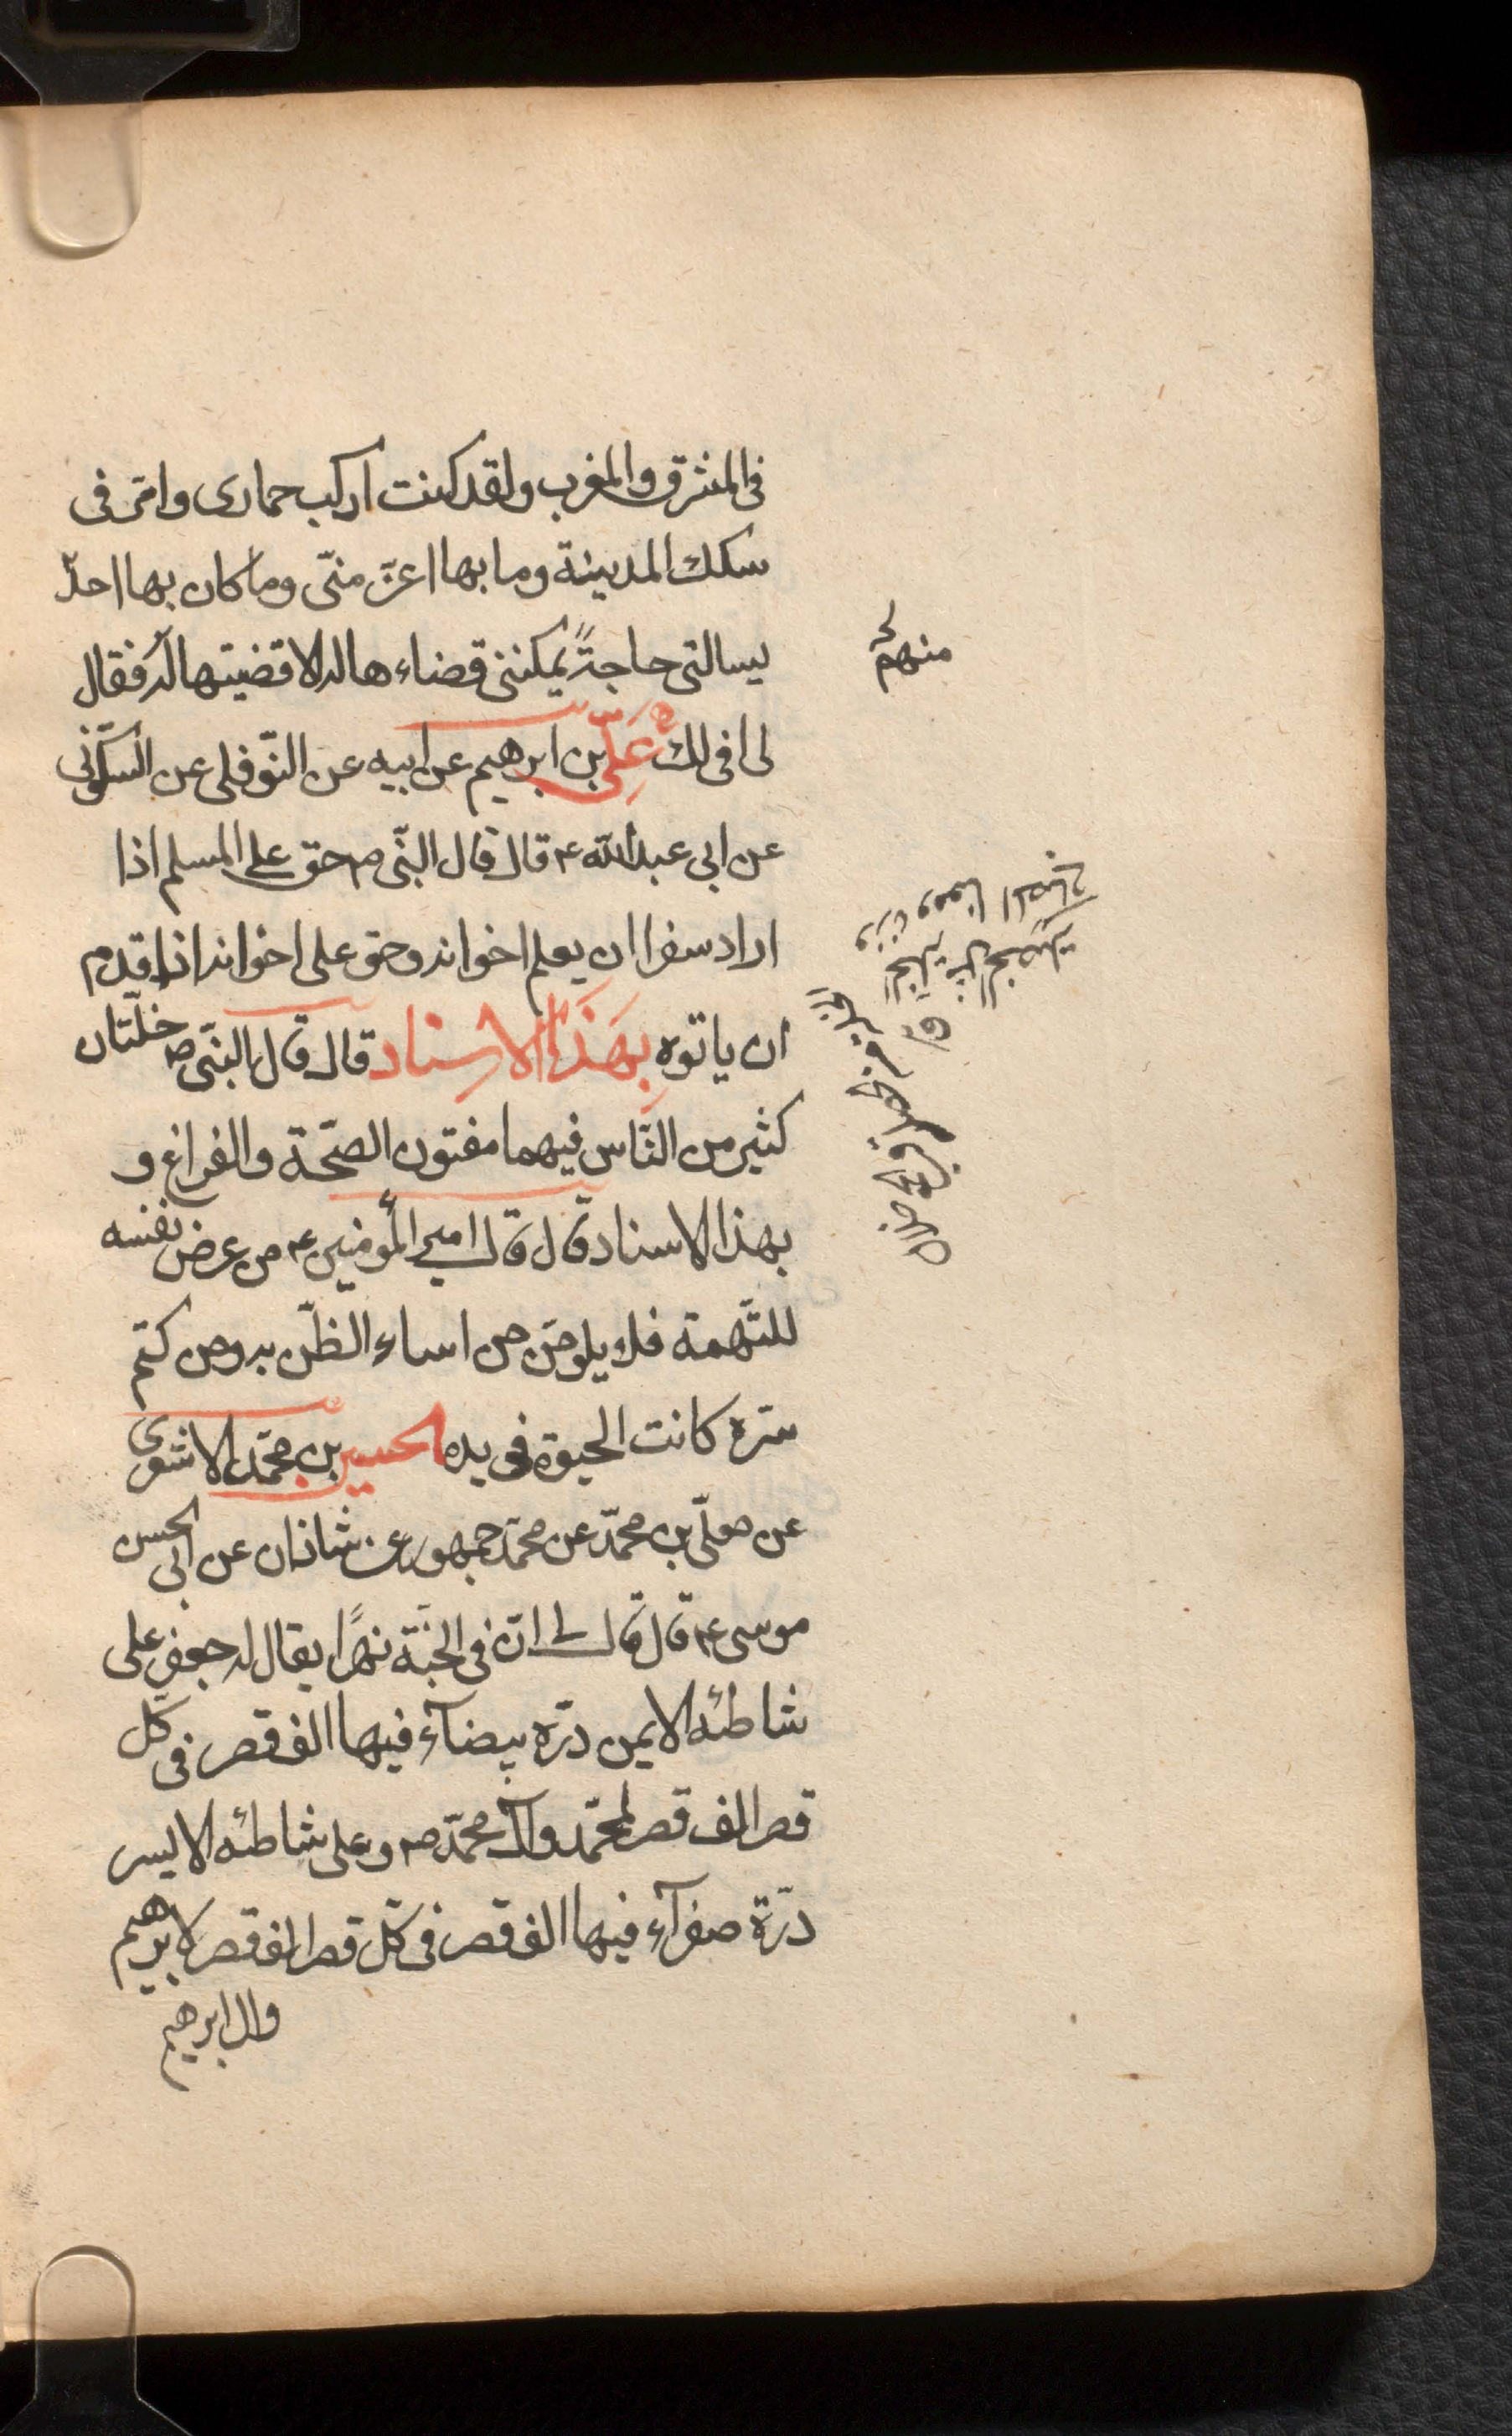 فى المشرق والمغرب ولقد كنت اركب حمارى وامرّ فى
سكك المدينة وما بها اعزّ منّى وما كان بها احدٌ
يسالنى حاجةً يمكننى قضاءها له الا قضيتها له فقال
منهم
لى افى لك علىّ بن ابرهيم عن ابيه عن النّوفلى عن السّكّونى
عن ابى عبد الله ع قال قال النّبى ص حق على المسلم اذا
اراد سفرا ان يعلم اخوانه وحق على اخوانه اذا قدم
ان ياتوه بهذا الاسناد قال قال النّبى ص خلّتان
كثير من النّاس فيهما مفتون الصّحّة والفراغ و
بهذا الاسناد قال قال امير المؤمنين ع من عرض نفسه
للتّهمة فلا يلومنّ من اساء الظّن به ومن كتم
سرّه كانت الحيوة فى يده الحسين بن محمّد الاشعرى
عن معلّى بن محمّد عن محمّد جمهور عن شاذان عن ابى الحسن
موسى ع قال قال لى انّ فى الجنّة نهرًا يقال له جعفر على
شاطئه الايمن درّه بيضآء فيها الف قصر فى كلّ
قصر الف قصر لمحمّد وآل محمّد ص وعلى شاطئه الايسر
درّة صفرآء فيها الف قصر فى كلّ قصر الف قصر لابرهيم
وال ابرهيم